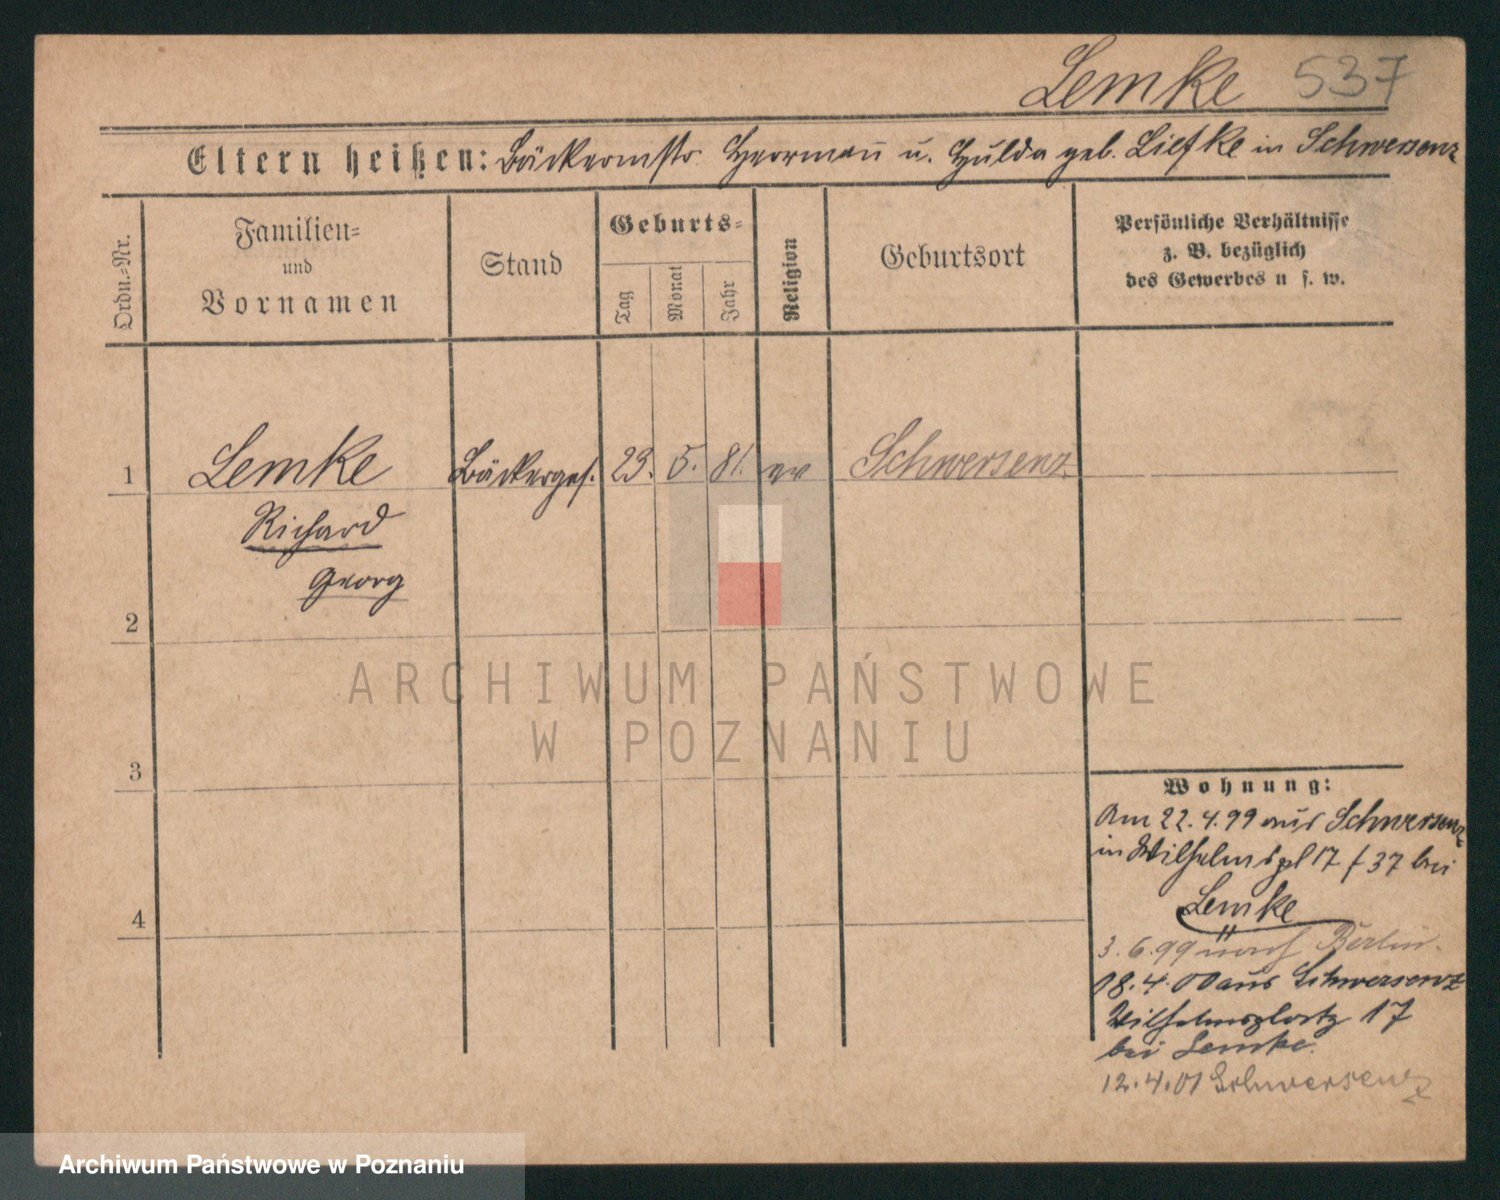 Lemke 537
Eltern heißen: Bäckermstr. Herrmann u. Hulda geb. Liefke in Schwersenz
Ordn.-Nr.
Familien-
und
Vornamen
Stand
Geburts-
Tag
Monat
Jahr
Religion
Geburtsort
Persönliche Verhältnisse
z. B. bezüglich
des Gewerbes u s. w.
1 Lemke Bäckerges. 23. 5. 81. ev Schwersenz
Richard
Georg
2
ARCHIWUM PAŃSTWOWE
W POZNANIU
3
Wohnung:
Am 22.4.99 aus Schwersenz
in Wilhelmspl 17 f 37 bei
Lemke
4
3.6.99 nach Berlin.
18.4.00 aus Schwersenz
Wilhelmsplatz 17
bei Lemke.
12.4.01 Schwersenz
Archiwum Państwowe w Poznaniu